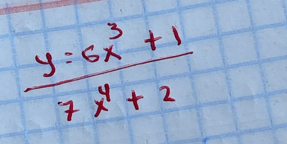 y = 6x³ + 1
7x⁴ + 2